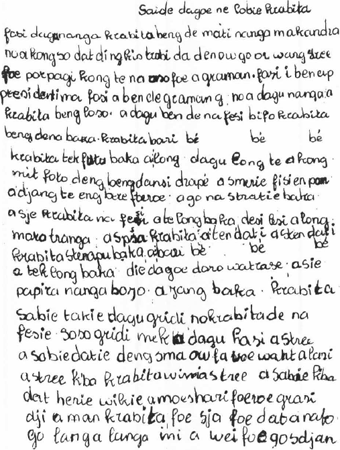 Saide dagoe ne Pobie Krabita
fosi dagoenanga Krabita beng de mati nanga makandra
noa kong so dat ding kis trobi da den owgo or wang stree
foe potpagi kong te na foe a graman. fosi i ben e up
presidentima fosi a ben de gramang. noa dagu nanga a
krabita beng poso. a dagu ben de na fesi bifo krabita
beng deno baka. krabita bari bé bé bé
krabita tek baka a long. dagu long te a kong
mit foto deng beng dansi drape a smerie fisi en
a djang te eng bere foeroe. a go na stratie baka
a sje krabita na fesi a te long baka desi fesi a long
moro tranga. a krabita aiten dati a sten dati
krabita sten a pu baka. a bari bé bé bé
a tek long baka die dagoe doro watrase. a sie
papira nanga bozo. a yang baka. krabita
sabie takie dagu gridi no krabita de na
fesie. soso gridi mek a dagu kasi a stree
a sabie datie deng sma ow fa wahti a lani
a stree kba krabita wini a stree a sabie kba
dat herie wikie a moe shari foeroe grasi
dji a man krabita foe sja foe dat a nafo
go langa langa ini a wei foe go